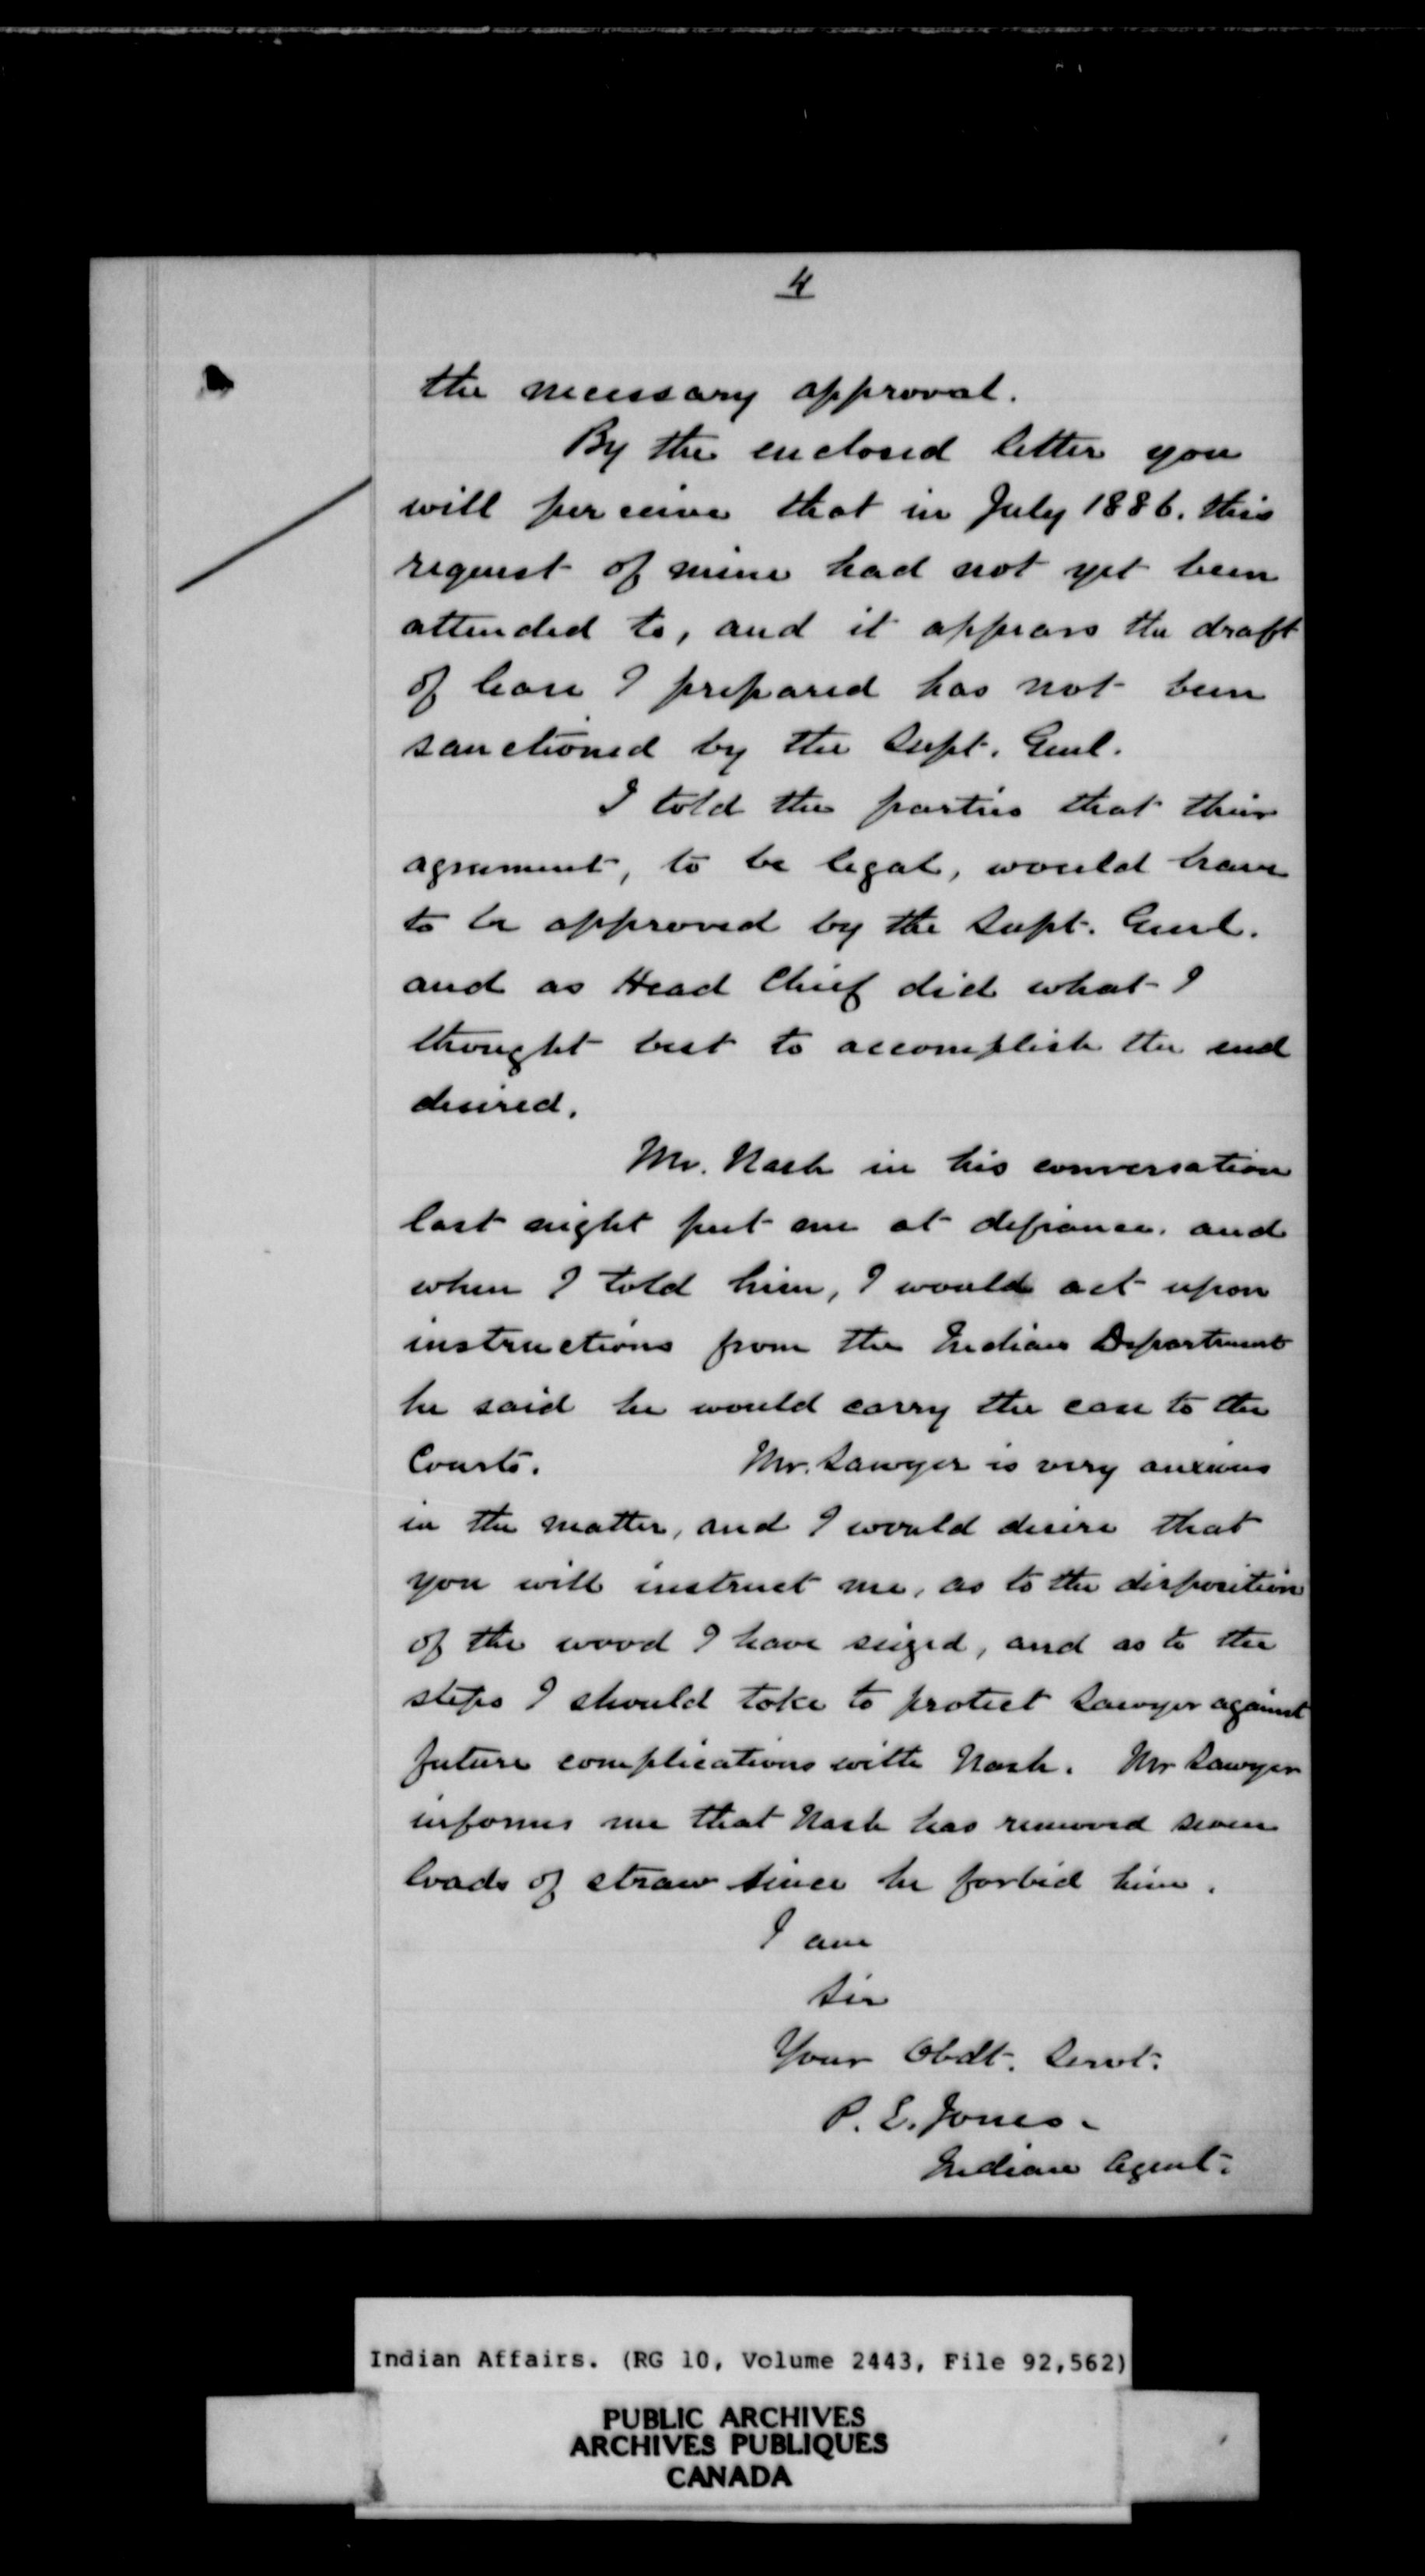 4
the necessary approval.
By the enclosed letter you
will perceive that in July 1886. this
request of mine had not yet been
attended to, and it appears the draft
of lease I prepared has not been
sanctioned by the Supt. Genl.
I told the parties that their
agreement, to be legal, would have
to be approved by the Supt. Genl.
and as Head Chief did what I
thought best to accomplish the end
desired.
Mr. Nash in his conversation
last night put me at defiance. and
when I told him, I would act upon
instructions from the Indian Department
he said he would carry the case to the
Courts. Mr. Sawyer is very anxious
in the matter, and I would desire that
you will instruct me, as to the disposition
of the wood I have seized, and as to the
steps I should take to protect Sawyer against
future complications with Nash. Mr Sawyer
informs me that Nash has removed seven
loads of straw since he forbid him.
I am
Sir
Your Obdt. Servt.
P. E. Jones.
Indian Agent.
Indian Affairs. (RG 10, Volume 2443, File 92,562)
PUBLIC ARCHIVES
ARCHIVES PUBLIQUES
CANADA